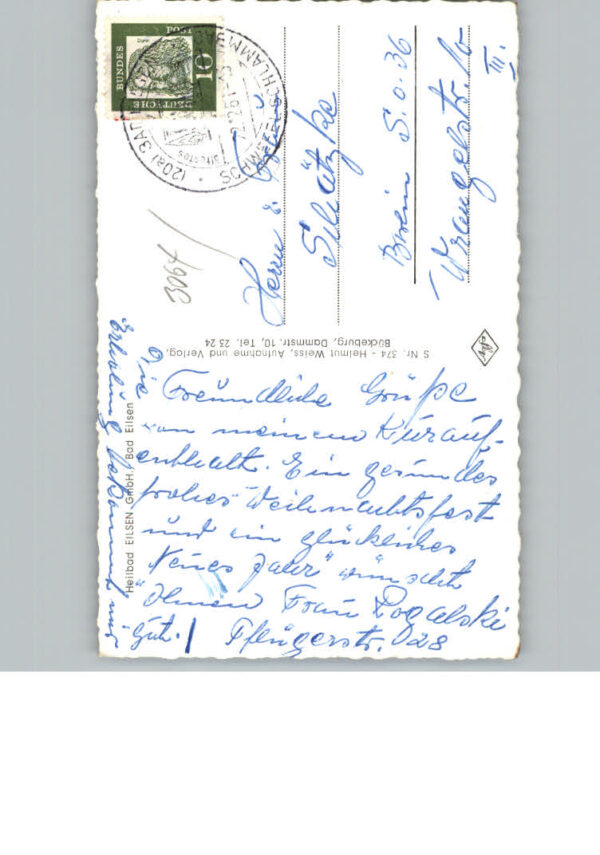 Freundliche Grüße
von meinem Kurauf-
enthalt. Ein gesundes
frohes Weihnachtsfest
und ein glückliches
"Neues Jahr" wünscht
Ihnen Frau Rogalski
Pflügerstr. 28
Die
Erholung bekommt mir
gut.!
Herrn & Frau
Schätzke
Berlin S.O.36
Wrangelstr. 10
III.
3064
S Nr. 374 - Helmut Weiss, Aufnahme und Verlag,
Bückeburg, Dammstr. 10, Tel. 23 24
Heilbad EILSEN GmbH., Bad Eilsen
DEUTSCHE
BUNDES
POST
10
Dürer
(20a) BAD EILSEN
SCHWEFEL-SCHLAMM